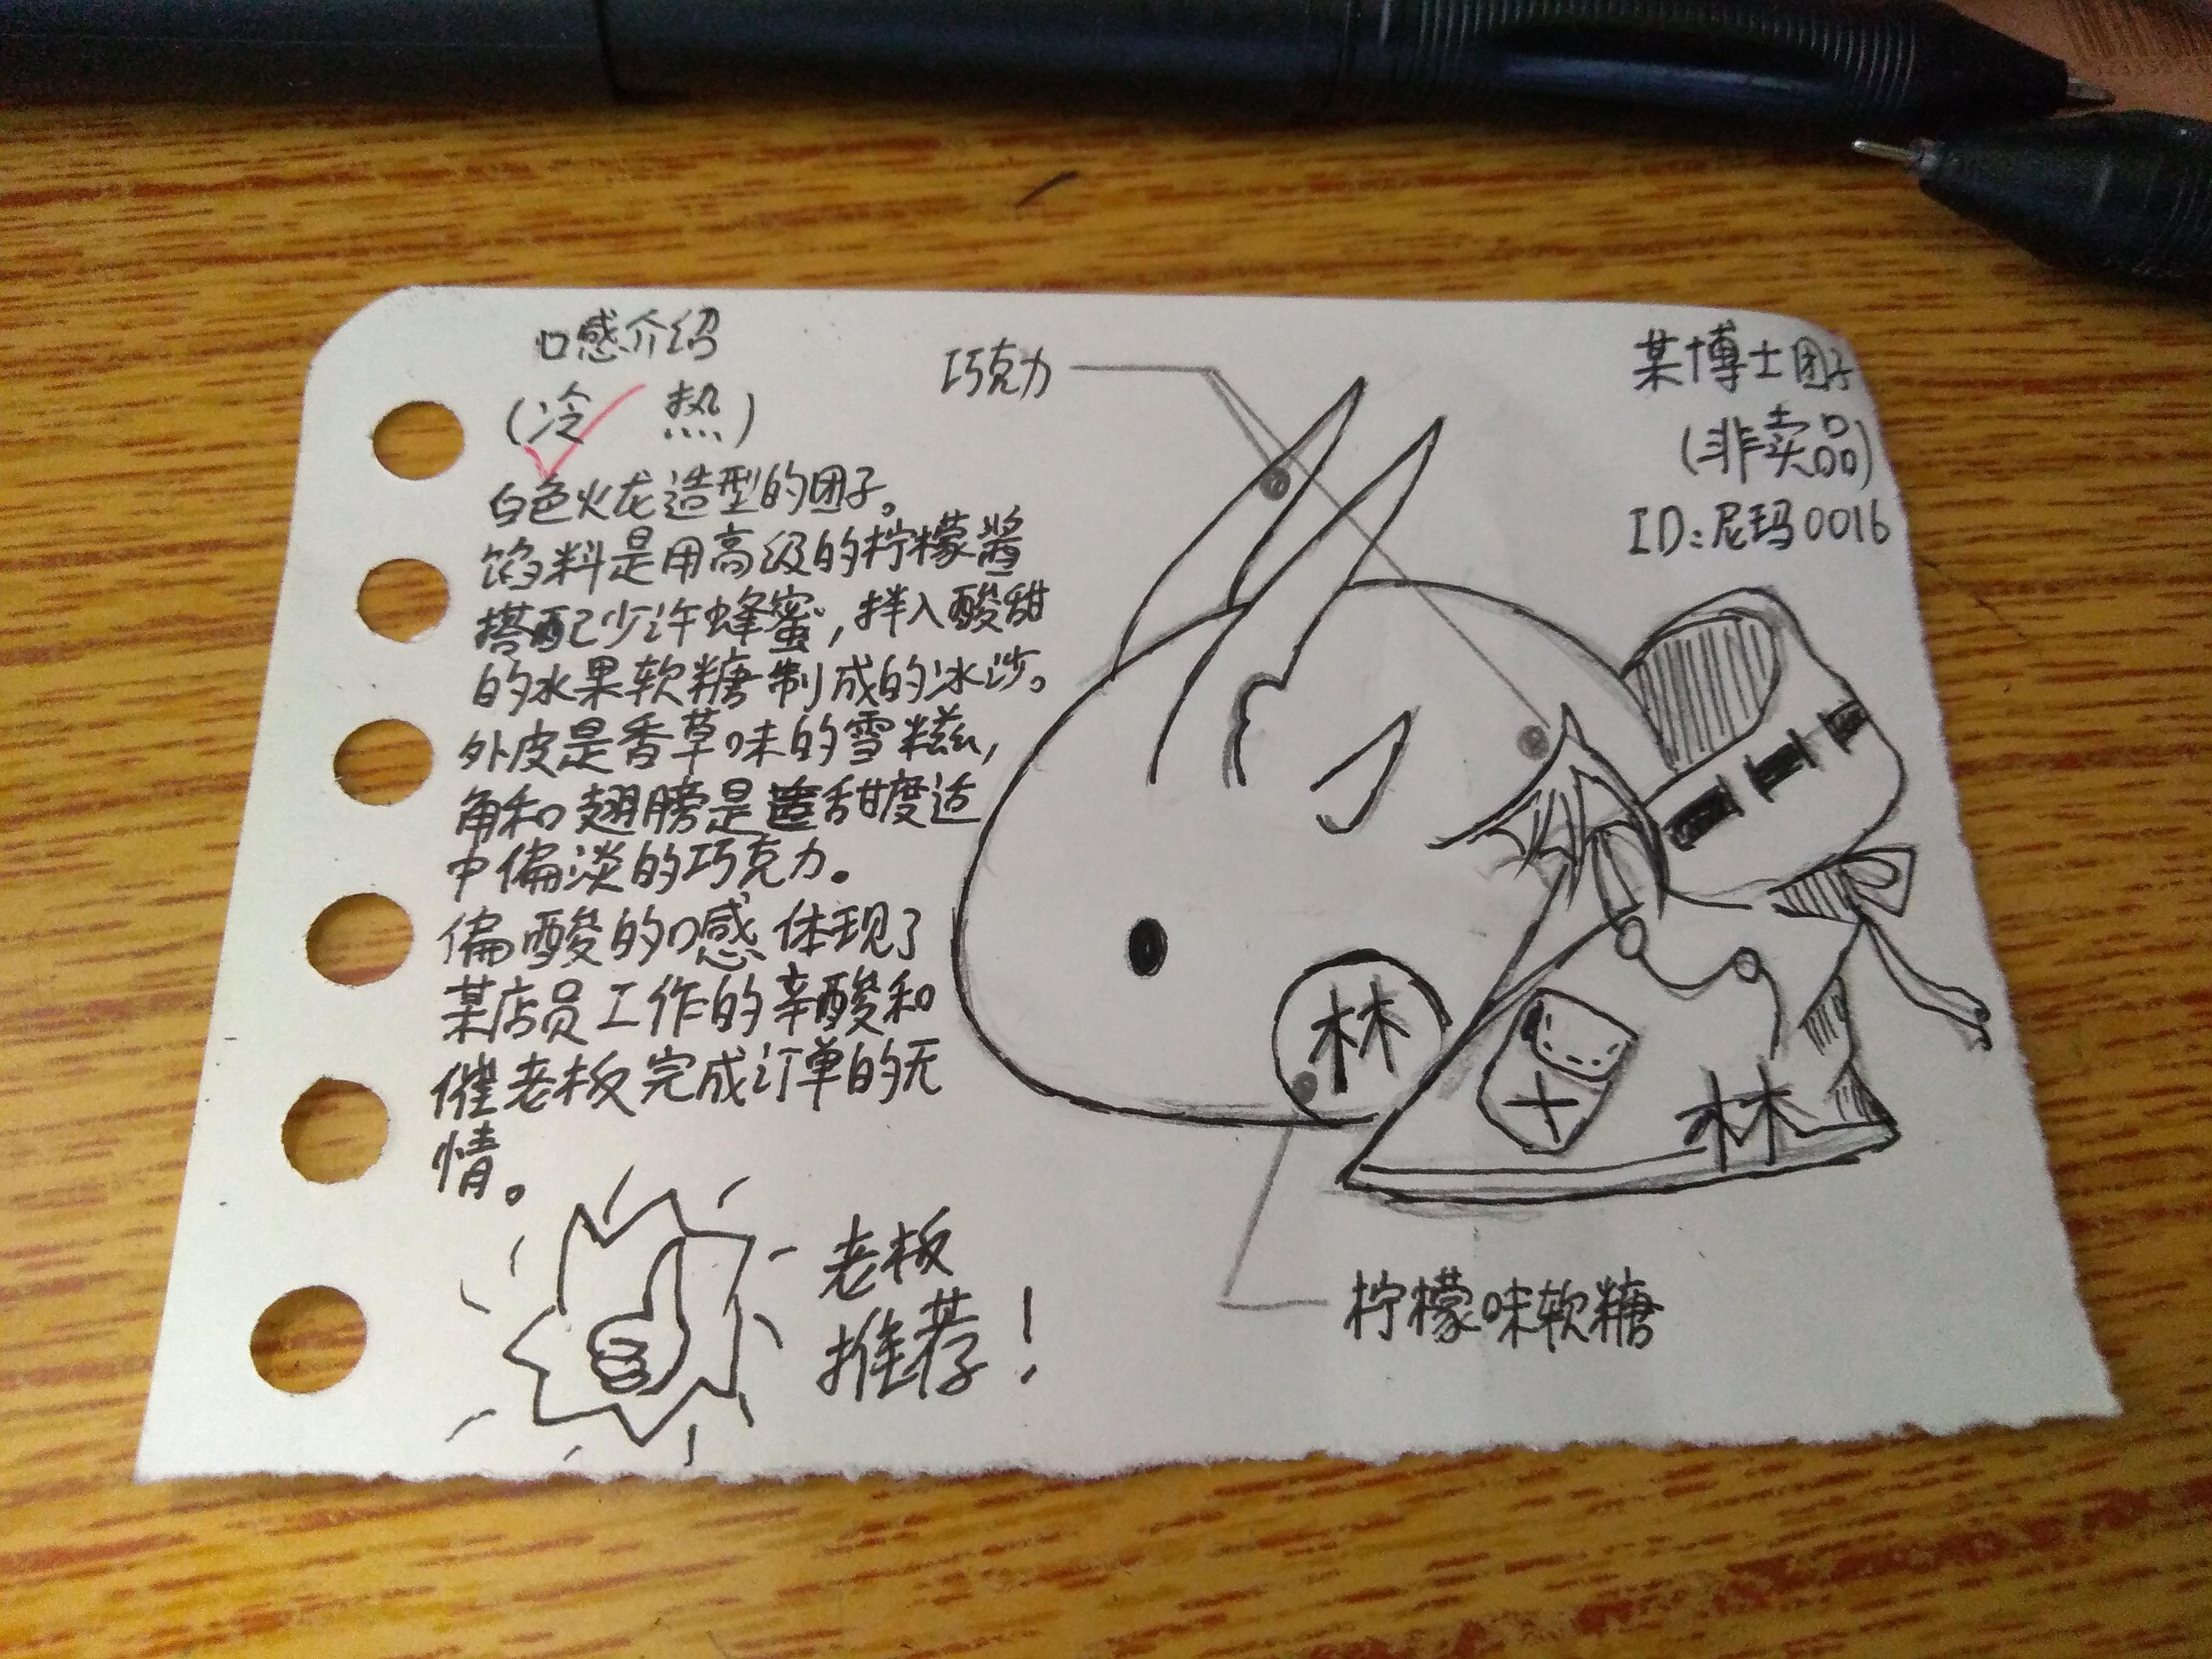 口感介绍
(冷 热)
白色火龙造型的团子。
馅料是用高级的柠檬酱
搭配少许蜂蜜，拌入酸甜
的水果软糖制成的冰沙。
外皮是香草味的雪糍，
角和翅膀是甜度适
中偏淡的巧克力。
偏酸的口感体现了
某店员工作的辛酸和
催老板完成订单的无
情。
老板
推荐！
巧克力
某博士团子
(非卖品)
ID:尼玛0016
林
林
柠檬味软糖